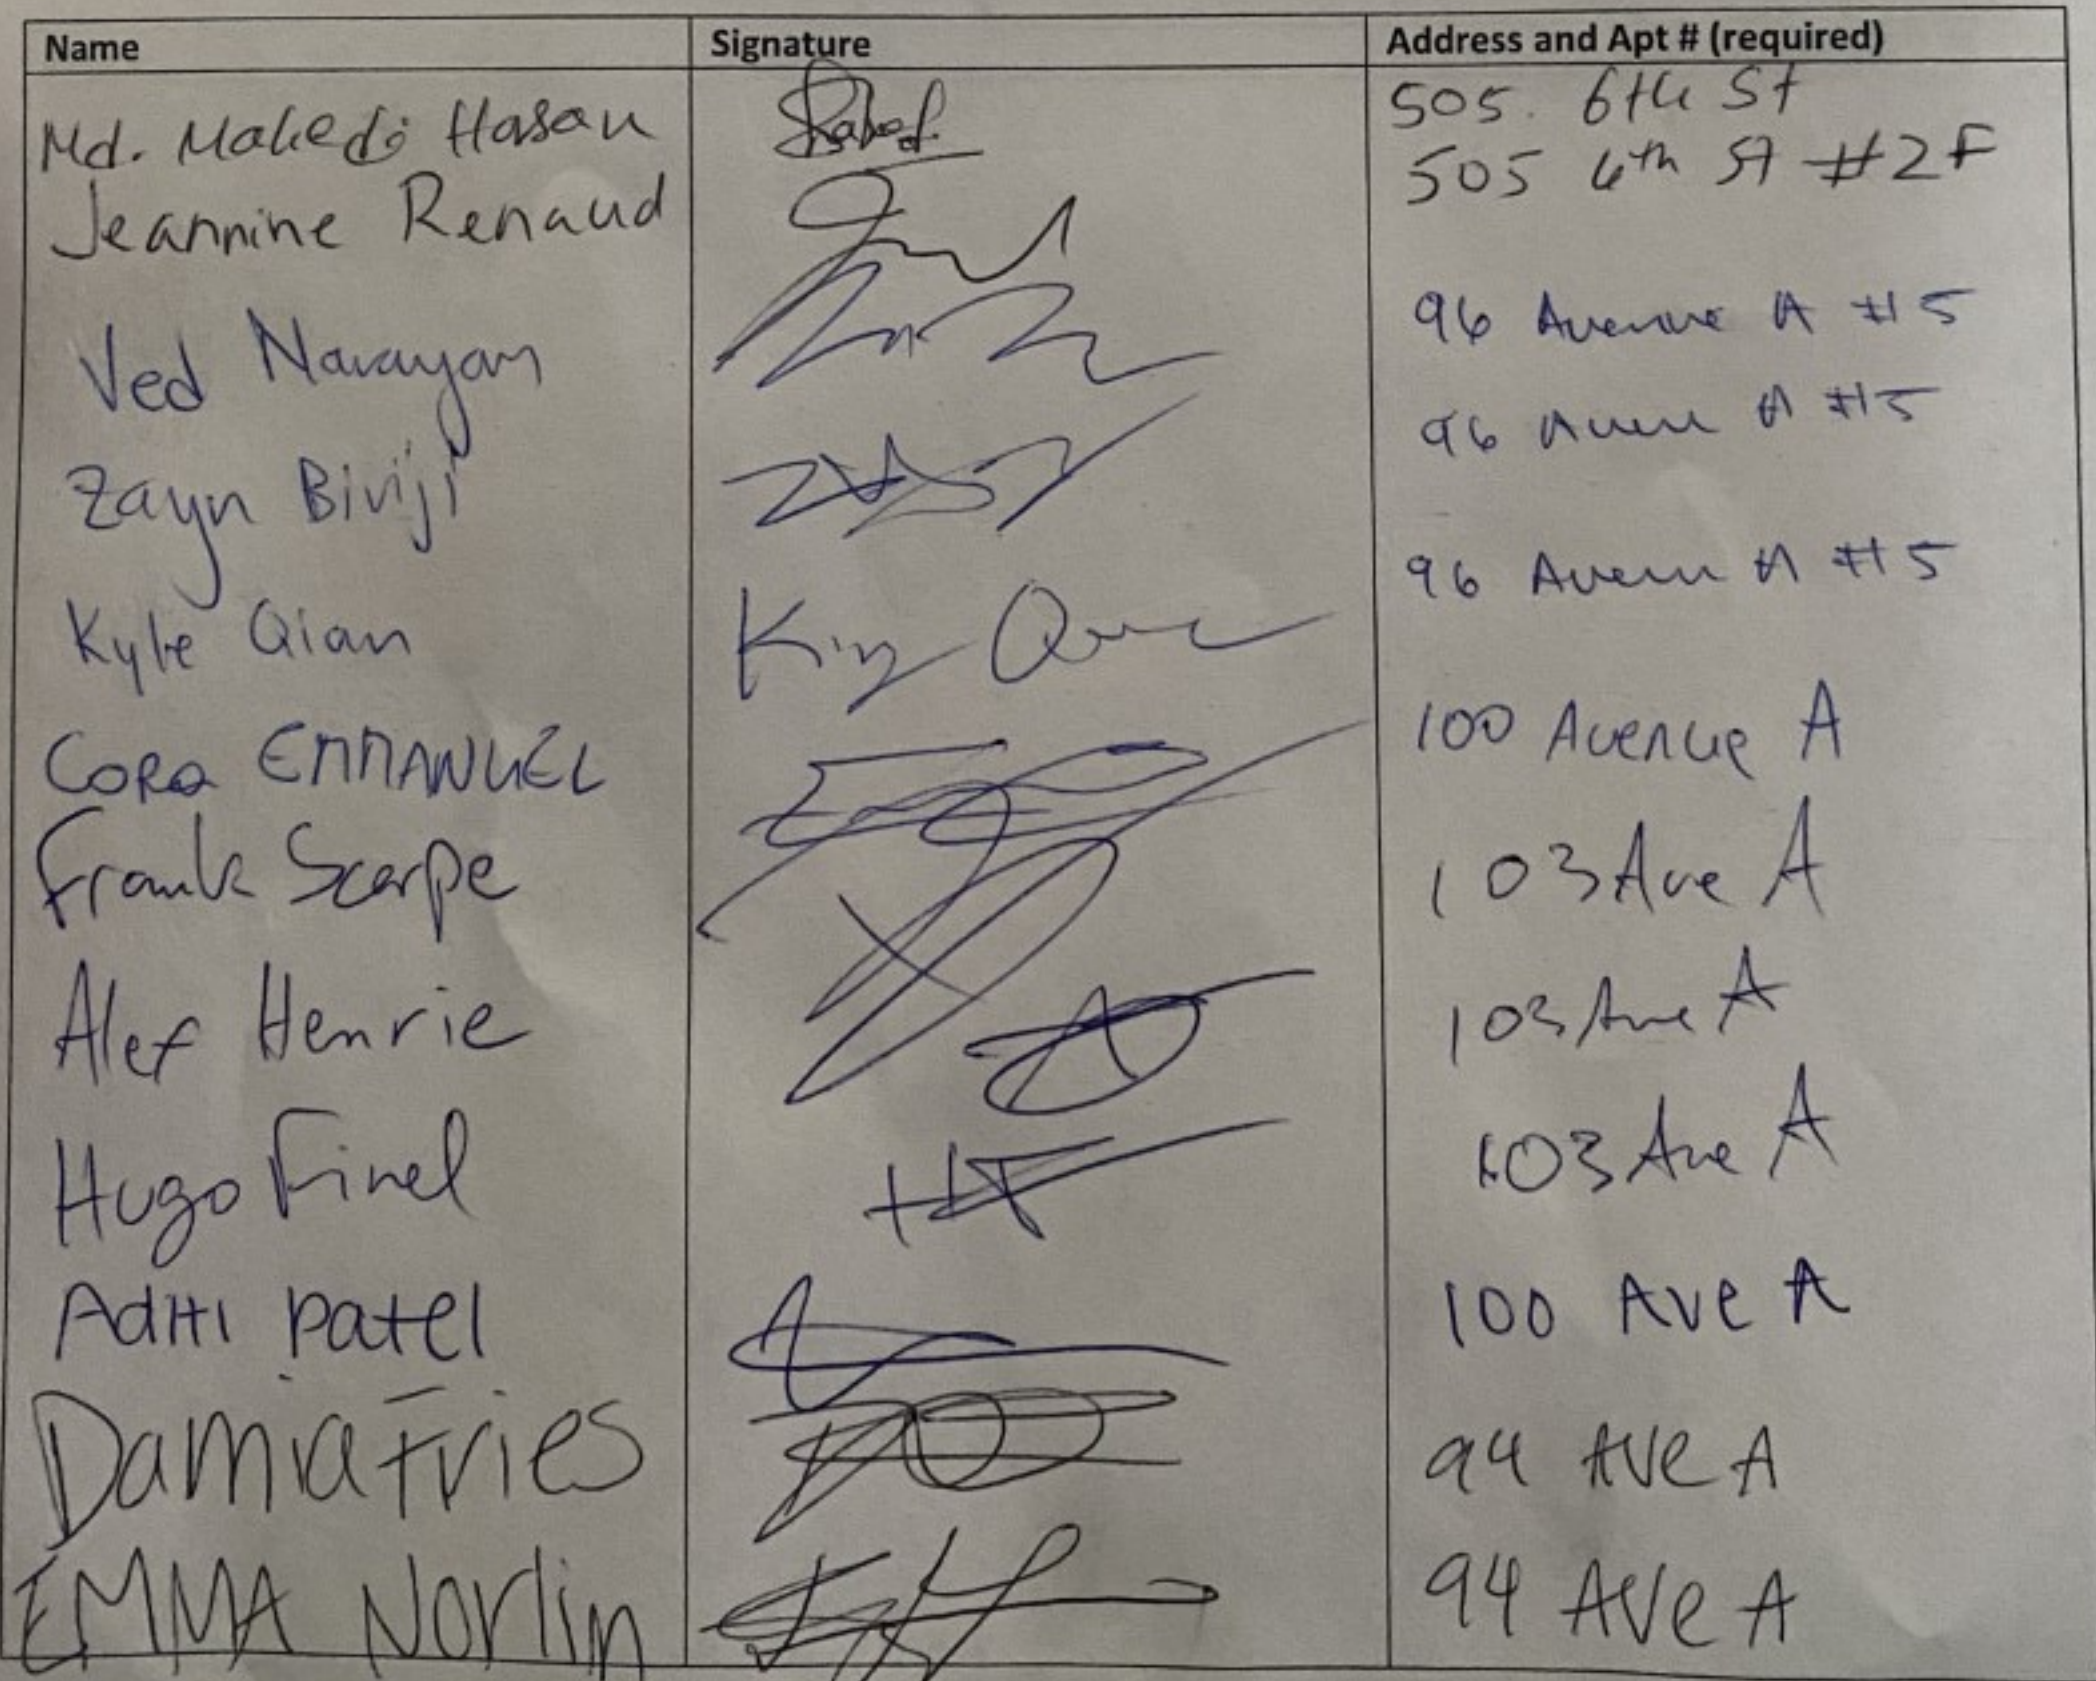 Name Signature Address and Apt # (required)
Md. Mahedi Hasan 505. 6th St
Jeannine Renaud 505 6th St #2F
Ved Narayan 96 Avenue A #5
Zayn Biviji 96 Avenue A #5
Kyle Qian 96 Avenue A #5
Cora EMMANUEL 100 Avenue A
Frank Scarpe 103 Ave A
Alex Henrie 103 Ave A
Hugo Finel 103 Ave A
Aditi Patel 100 Ave A
Damia Fries 94 Ave A
EMMA Norlin 94 Ave A